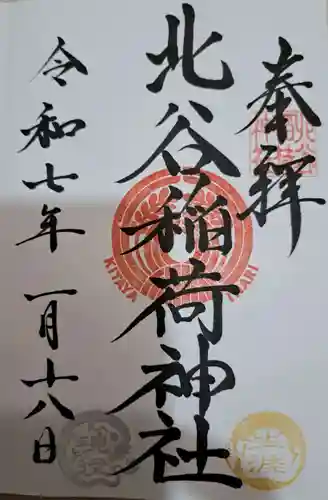 奉拝
北谷稲荷神社
令和七年一月十八日